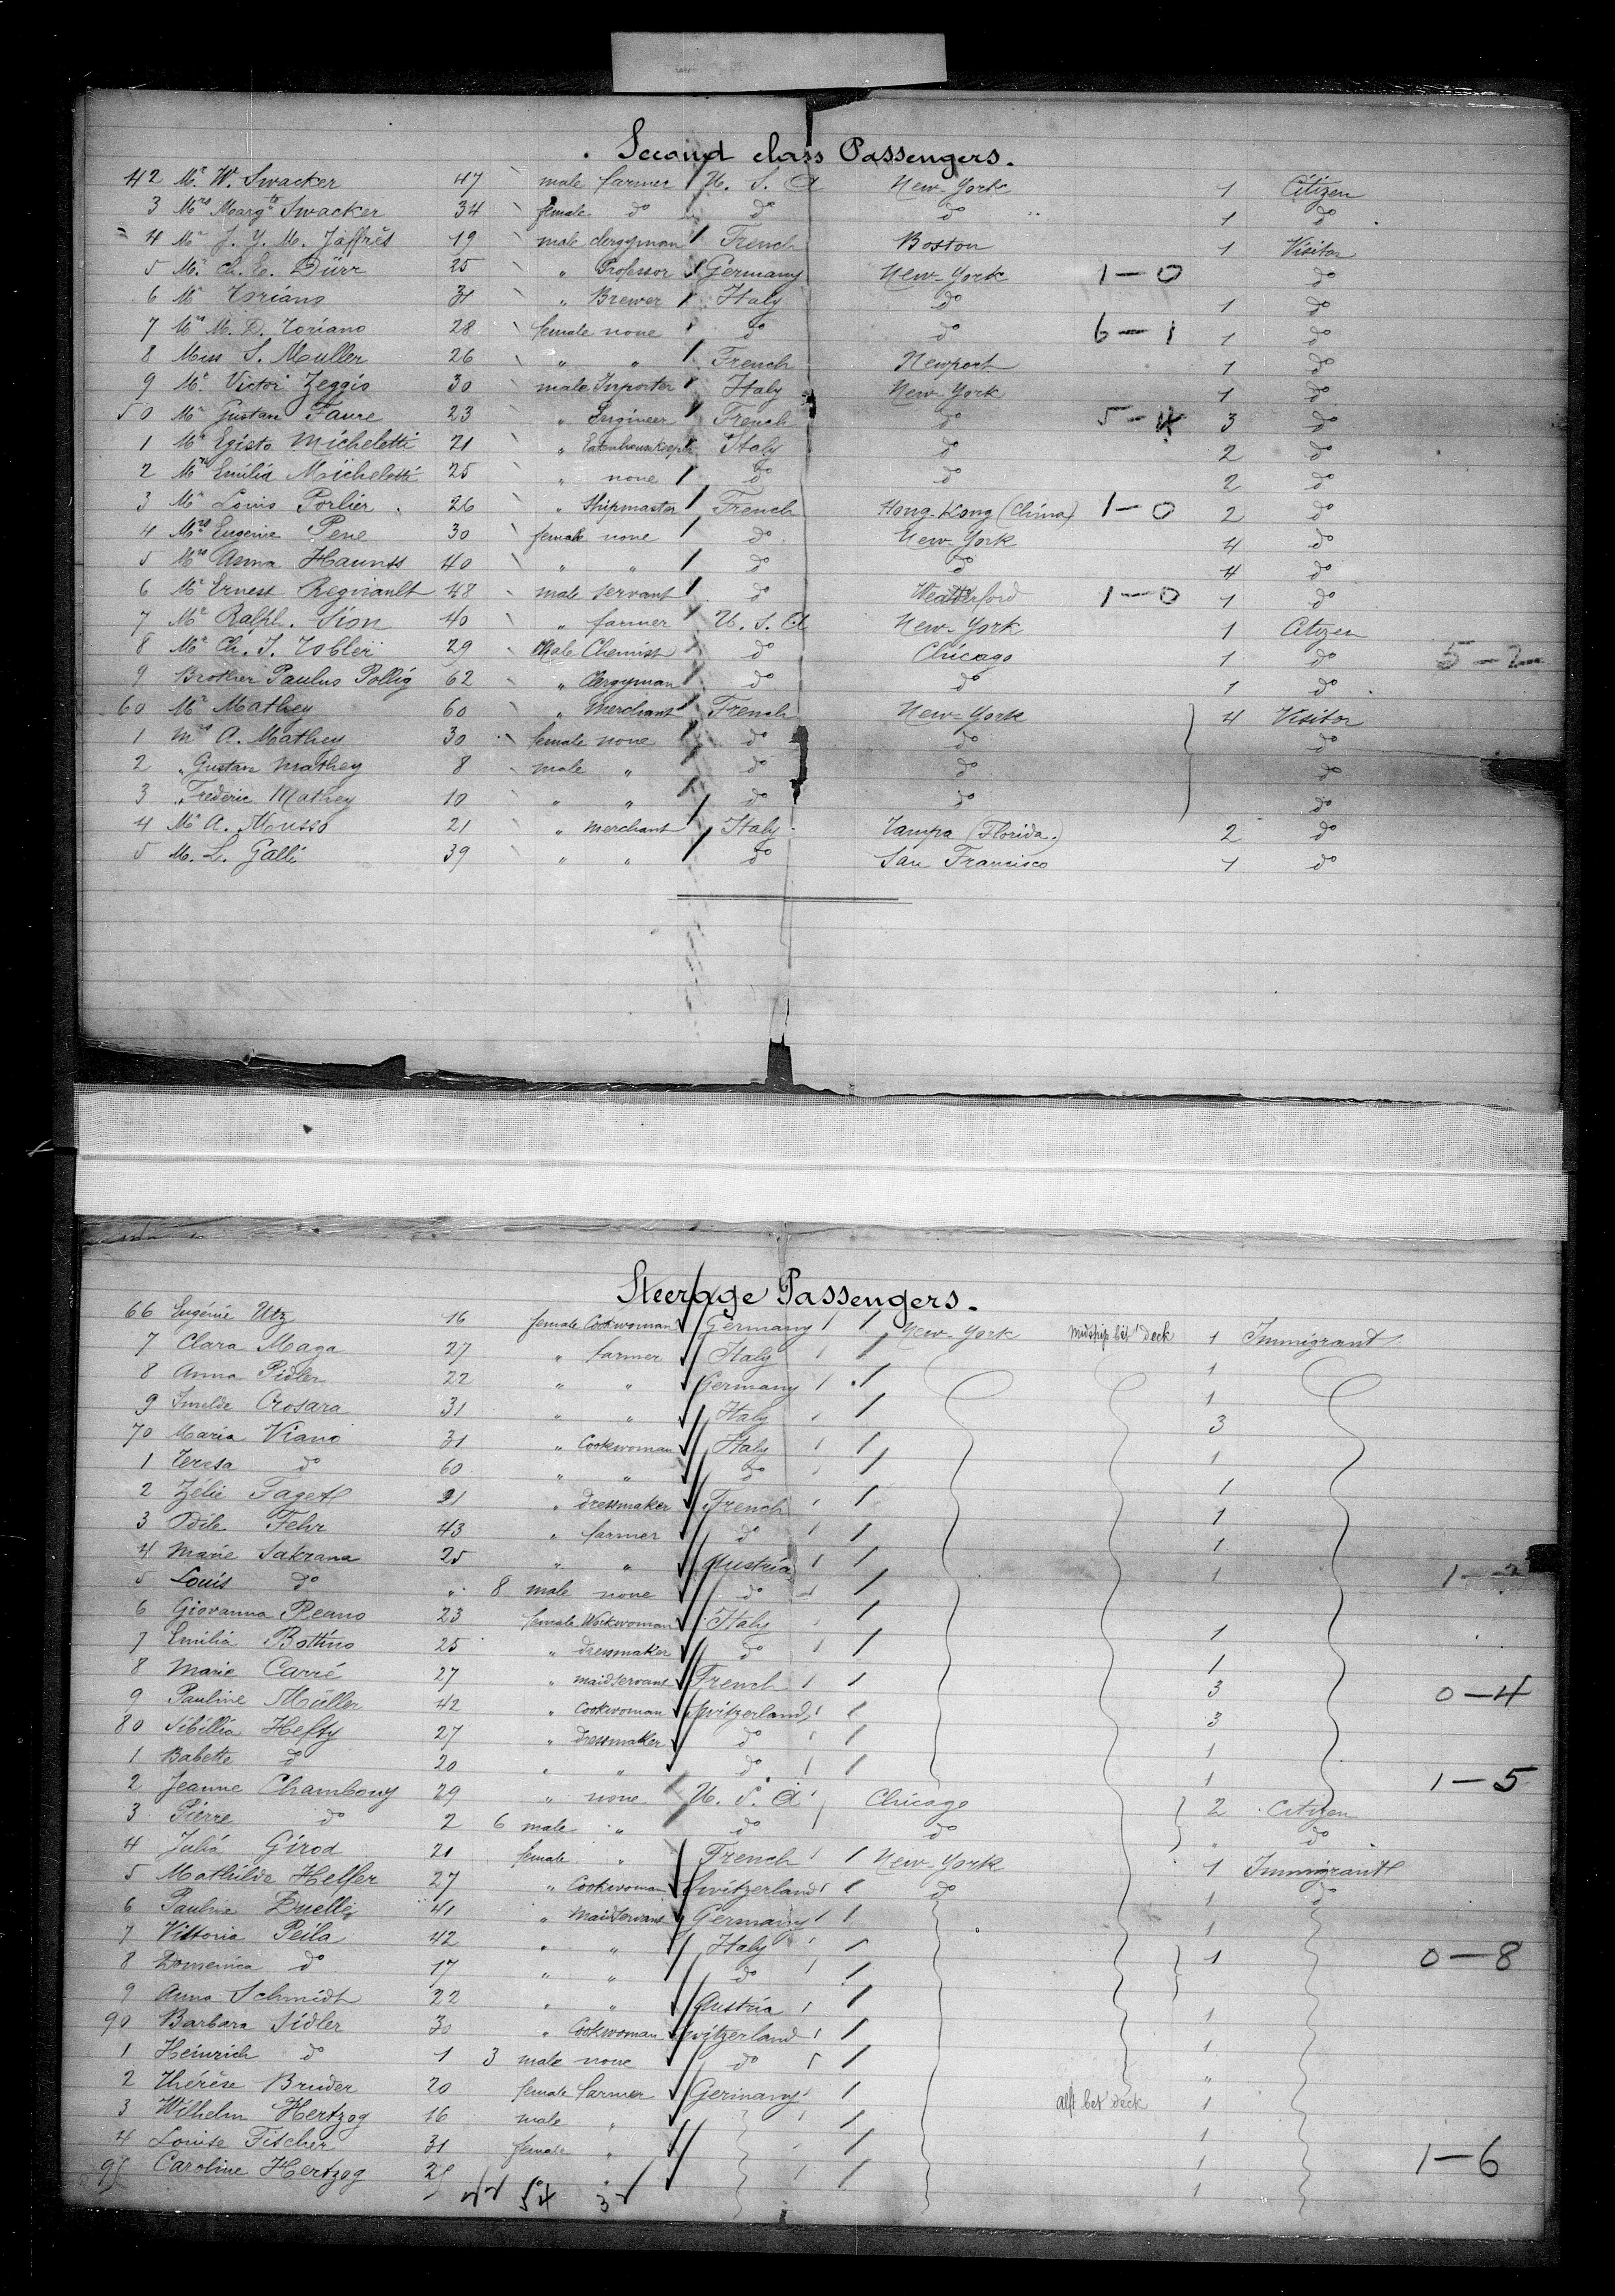 Second class Passengers.
42 Mr W. Swacker 47 male farmer U. S. A New-York 1 Citizen
3 Mrs Margte Swacker 34 female do do do 1 do
4 Mr J. Y. M. Jaffrès 19 male clergyman French Boston 1 Visitor
5 Mr Ch. E. Dürr 25 " Professor Germany New-York 1-0 do
6 Mr Toriano 31 " Brewer Italy do 1 do
7 Mrs M. D. Toriano 28 female none do do 6-1 1 do
8 Miss S. Muller 26 " " French Newport 1 do
9 Mr Victor Zeggio 30 male Importer Italy New-York 1 do
50 Mr Gustan Faure 23 " Ingineer French do 5-4 3 do
1 Mr Egisto Micheletti 21 " Italy do 2 do
2 Mrs Emilia Micheletti 25 " none do do 2 do
3 Mr Louis Porlier 26 " Shipmaster French Hong-Kong (China) 1-0 2 do
4 Mrs Eugenie Pene 30 female none do New-York 4 do
5 Mrs Anna Haunss 40 " " do do 4 do
6 Mr Ernest Regnault 48 male servant do Weatherford 1-0 1 do
7 Mr Ralph. Sion 40 " farmer U. S. A New-York 1 Citizen
8 Mr Ch. J. Tobler 29 Male Chemist do Chicago 1 do 5-2
9 Brother Paulus Pollig 62 " Clergyman do do 1 do
60 Mr Mathey 60 " Merchant French New-York 4 Visitor
1 Mrs A. Mathey 30 female none do do do
2 " Gustan Mathey 8 male " do do do
3 " Frederic Mathey 10 " " do do do
4 Mr A. Musso 21 " merchant Italy Tampa (Florida) 2 do
5 M. L. Galli 39 " " do San Francisco 1 do
Steerage Passengers.
66 Eugénie Utz 16 female Cookwoman Germany New-York midship bet deck 1 Immigrant
7 Clara Maga 27 " farmer Italy 1
8 Anna Pidler 22 " " Germany 1
9 Imelde Crosara 31 " " Italy 3
70 Maria Viano 31 " Cookwoman Italy 1
1 Teresa do 60 " " do 1
2 Zélie Fagett 21 " dressmaker French 1
3 Odile Fehr 43 " farmer do 1
4 Marie Sakrana 25 " " Austria 1
5 Louis do " 8 male none do
6 Giovanna Peano 23 female Workwoman Italy 1
7 Emilia Bottino 25 " dressmaker do 1
8 Marie Carré 27 " maidservant French 3 0-4
9 Pauline Müller 42 " Cookwoman Switzerland 3
80 Sibillia Hefty 27 " dressmaker do 1
1 Babette do 20 " " do 1 1-5
2 Jeanne Chambouy 29 " none U. S. A Chicago 2 Citizen
3 Pierre do 2 6 male " do do " do
4 Julia Girod 21 female " French New-York 1 Immigrant
5 Mathilde Helfer 27 " Cookwoman Switzerland do 1 do
6 Pauline 41 " Maidservant Germany 1
7 Vittoria Peila 42 " " Italy 1 0-8
8 Domenica do 17 " " do
9 Anna Schmidt 22 " " Austria 1
90 Barbara Sidler 30 " Cookwoman Switzerland 1
1 Heinrich do 1 3 male none do "
2 Thérèse Bruder 20 female farmer Germany aft bet deck 1
3 Wilhelm Hertzog 16 male " 1
4 Louise Fischer 31 female " 1 1-6
95 Caroline Hertzog 1